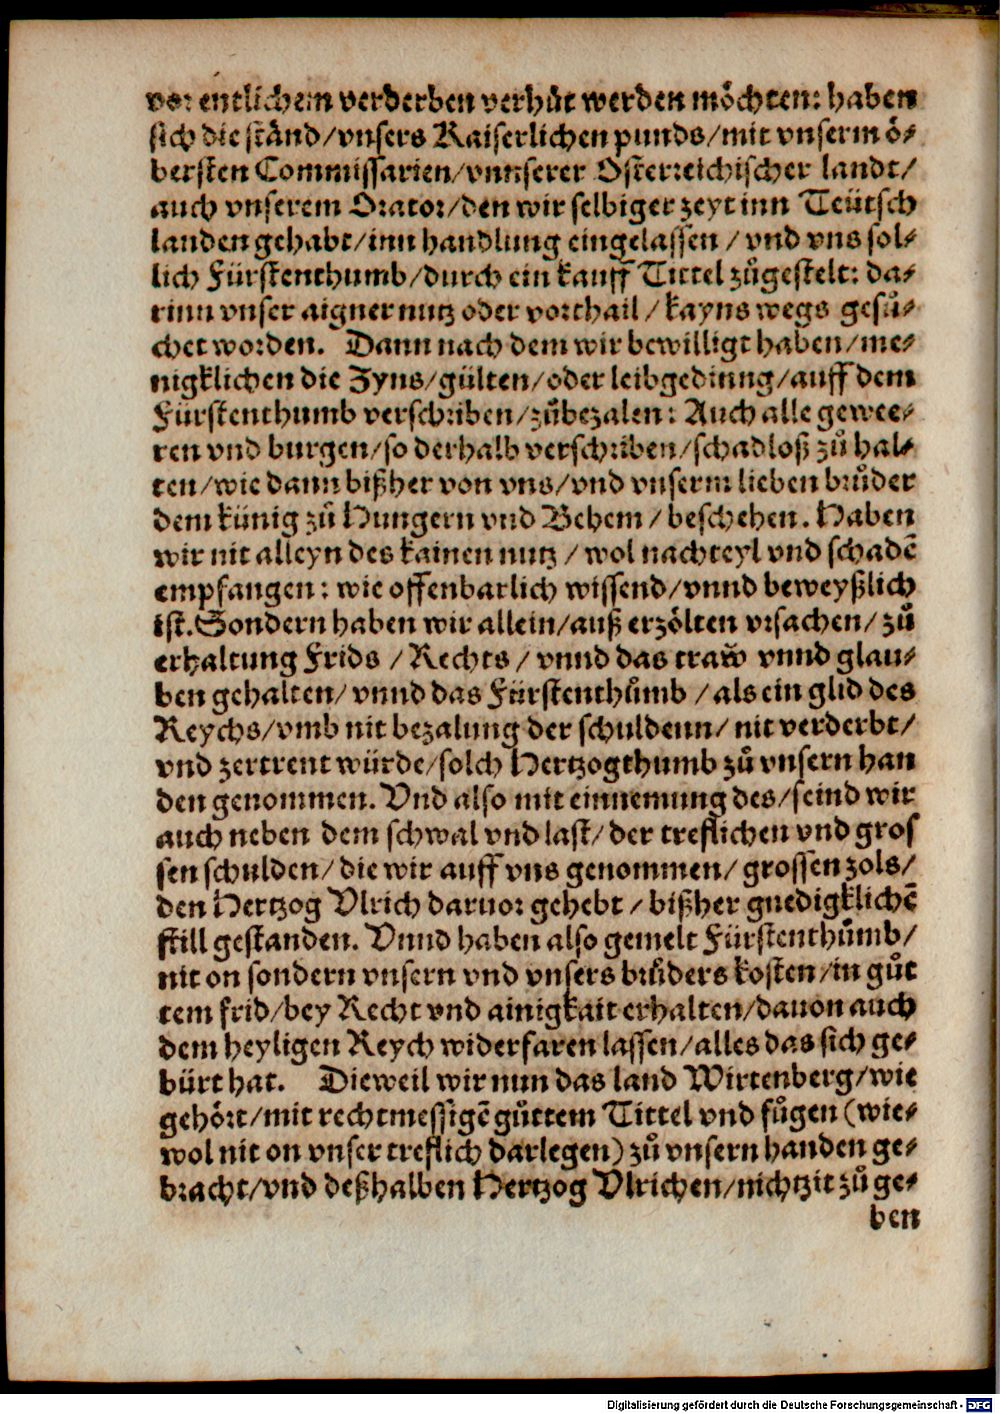 vor entlichem verderben verhůt werden möchten: haben
sich die ständ/vnsers Kaiserlichen punds/mit vnserm ö-
bersten Commissarien/vnnserer Osterreichischer landt/
auch vnserem Orator/den wir selbiger zeyt inn Teütsch
landen gehabt/inn handlung eingelassen/vnd vns sol-
lich Fürstenthumb/durch ein kauff Tittel zůgestelt: da-
rinn vnser aigner nutz oder vorthail/kayns wegs gesů-
chet worden. Dann nach dem wir bewilligt haben/me-
nigklichen die Zyns/gülten/oder leibgedinng/auff dem
Fürstenthumb verschriben/zůbezalen: Auch alle gewee-
ren vnd burgen/so derhalb verschriben/schadloß zů hal-
ten/wie dann bißher von vns/vnd vnserm lieben brůder
dem künig zů Hungern vnd Behem/beschehen. Haben
wir nit alleyn des kainen nutz/wol nachteyl vnd schadē
empfangen: wie offenbarlich wissend/vnnd beweyßlich
ist. Sondern haben wir allein/auß erzölten vrsachen/zů
erhaltung Frids/Rechts/vnnd das traw̆ vnnd glau-
ben gehalten/vnnd das Fürstenthůmb/als ein glid des
Reychs/vmb nit bezalung der schuldenn/nit verderbt/
vnd zertrent würde/solch Hertzogthumb zů vnsern han
den genommen. Vnd also mit einnemung des/seind wir
auch neben dem schwal vnd last/der treflichen vnd gros
sen schulden/die wir auff vns genommen/grossen zols/
den Hertzog Vlrich daruor gehebt/bißher gnedigklichē
still gestanden. Vnnd haben also gemelt Fürstenthůmb/
nit on sondern vnsern vnd vnsers brůders kosten/in gůt
tem frid/bey Recht vnd ainigkait erhalten/dauon auch
dem heyligen Reych widerfaren lassen/alles das sich ge-
bürt hat. Dieweil wir nun das land Wirtenberg/wie
gehört/mit rechtmessigē gůttem Tittel vnd fůgen (wie-
wol nit on vnser treflich darlegen) zů vnsern handen ge-
bracht/vnd deßhalben Hertzog Vlrichen/nichtzit zů ge-
ben
Digitalisierung gefördert durch die Deutsche Forschungsgemeinschaft - DFG